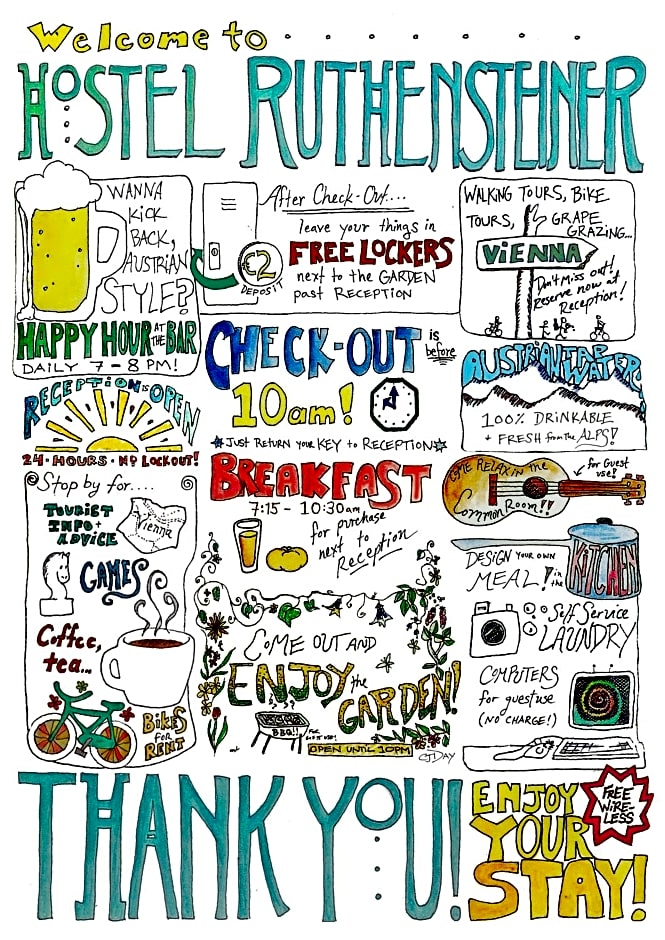 Welcome to . . . . . . . .
HOSTEL RUTHENSTEINER
WANNA
KICK
BACK,
AUSTRIAN
STYLE?
HAPPY HOUR AT THE BAR
DAILY 7 - 8 PM!
After Check-Out....
leave your things in
FREE LOCKERS
next to the GARDEN
past RECEPTION
€2
DEPOSIT
WALKING TOURS, BIKE
TOURS, GRAPE
GRAZING...
VIENNA
Don't miss out!
Reserve now at
Reception!
CHECK-OUT is before
10am!
JUST RETURN your KEY to RECEPTION
AUSTRIAN TAP WATER:
100% DRINKABLE
+ FRESH from the ALPS!
RECEPTION is OPEN
24 - HOURS - NO LOCKOUT!
BREAKFAST
7:15 - 10:30am
for purchase
next to
Reception
COME RELAX IN the
Common Room!!
for Guest
use!
Stop by for....
TOURIST
INFO +
ADVICE
Vienna
GAMES
Coffee,
tea...
BIKES
FOR
RENT
DESIGN YOUR OWN
MEAL! in the
KITCHEN
Self Service
LAUNDRY
COMPUTERS
for guest use
(NO CHARGE!)
COME OUT AND
ENJOY the
GARDEN!
BBQ!!
OPEN UNTIL 10PM
CJDAY
THANK YOU!
ENJOY
YOUR
STAY!
FREE
WIRE-
LESS